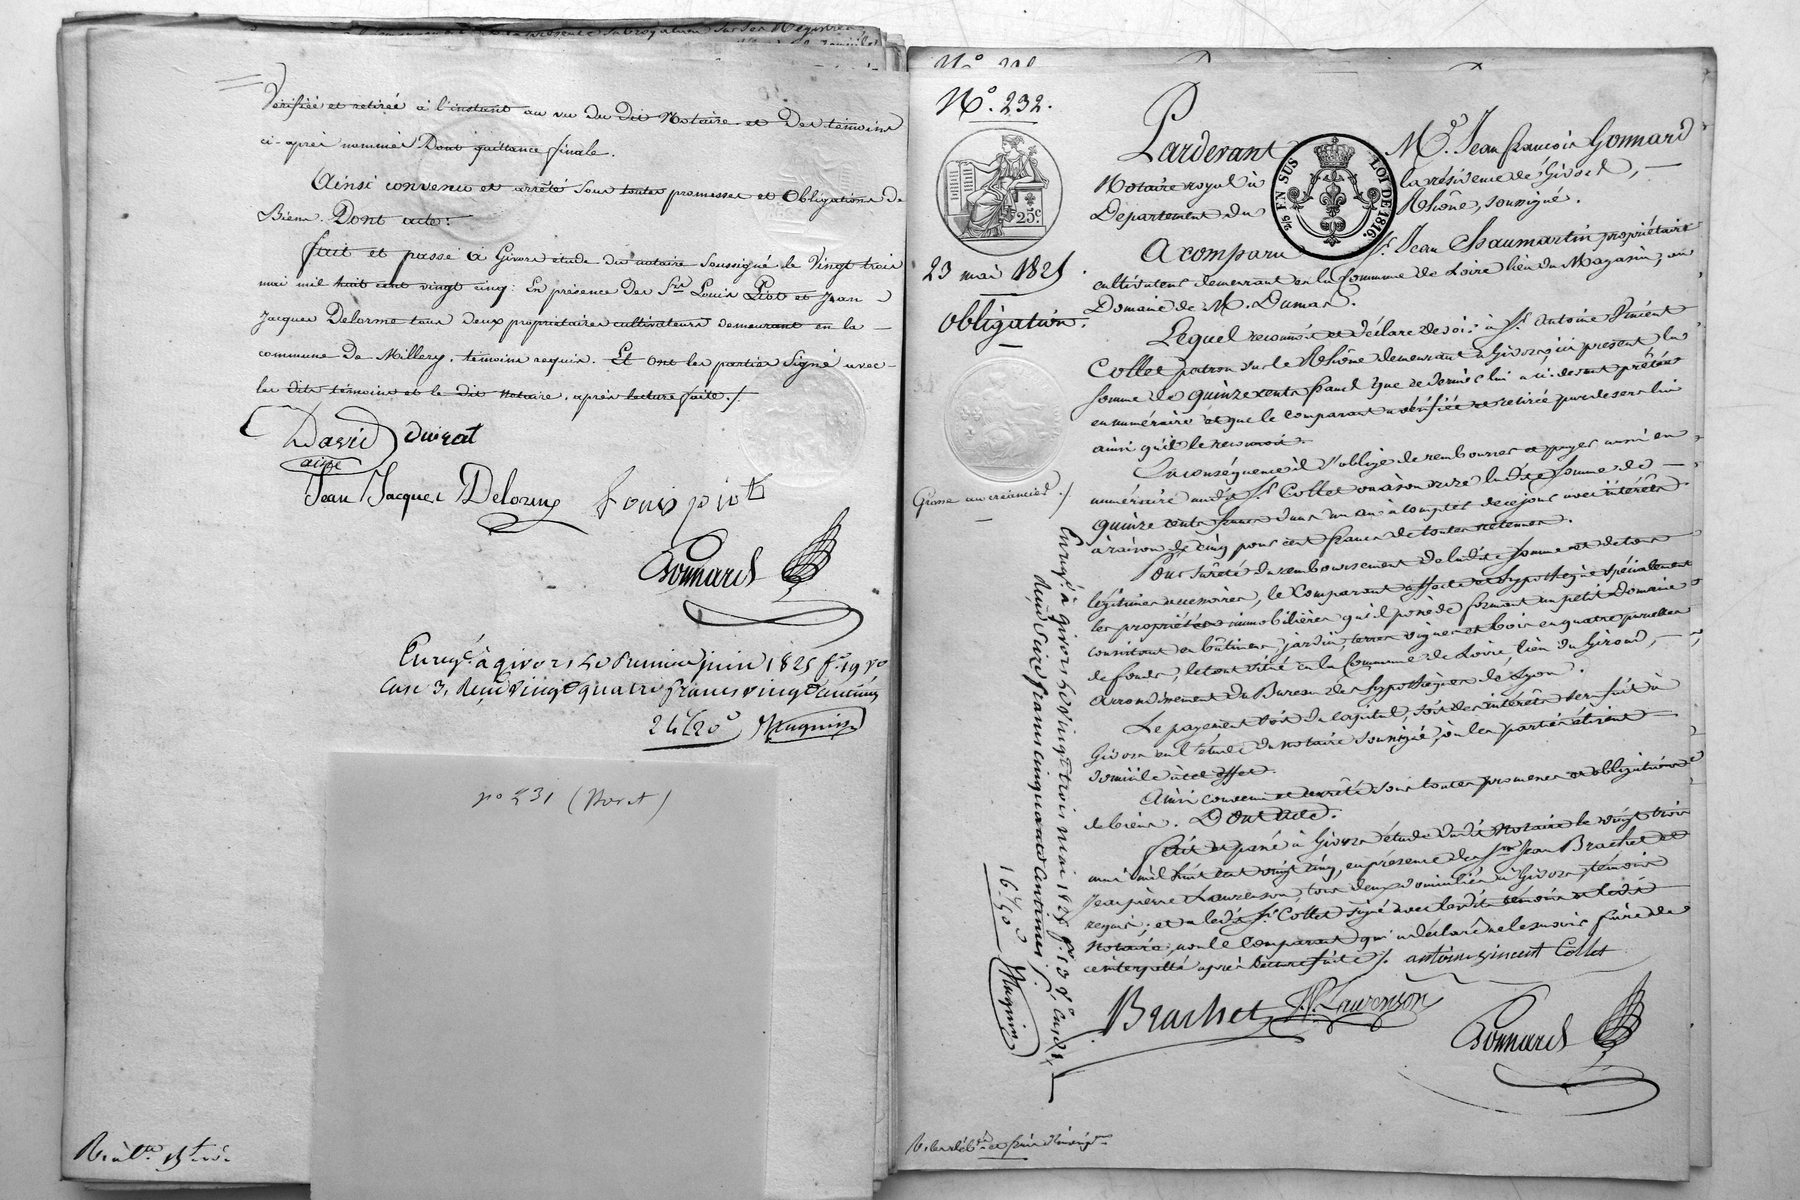 Vérifiée et retirée à l'instant au vu du dit Notaire et des témoins
ci-après nommés Dont quittance finale.
Ainsi convenu et arrêté sous toutes promesses et obligations de
Biens. Dont acte:
fait et passé à Givors étude du notaire soussigné le Vingt trois
mai mil huit cent vingt cinq: En présence des Srs Louis Piot et Jean
Jacques Delorme tous deux propriétaires cultivateurs demeurant en la
commune de Millery, témoins requis. Et ont les parties signé avec
les dits témoins et le dit Notaire, après lecture faite./.
David duivat
aîné
Jean Jacques Delorme Louis piot
Gonnard
Enregé. à givors le Premier juin 1825 fo. 19 Vo
Case 3, Reçu Vingt quatre francs vingt centimes
24f20c Magnin
no 231
No. 232.
25c
23 mai 1825
Obligation.
Grosse au créancier./
2/10 EN SUS LOI DE 1816.
Pardevant Me. Jean francois Gonnard
Notaire royal à la résidence de Givors,
Département du Rhône, soussigné.
A comparu Sr. Jean Chaumartin propriétaire
cultivateur demeurant en la Commune de Loire lieu du Magasin, au
Domaine de M. Dumas.
Lequel reconnoit et déclare devoir à Sr. Antoine Vincent
Collet patron sur le Rhône demeurant à Givors, ici présent la
somme de quinze cents francs que ce dernier lui a ci-devant prêtée
en numéraire et que le comparant a vérifiée et retirée pardevers lui
ainsi qu'il le reconnoit.
En conséquence il s'oblige de rembourser et payer aussi en
numéraire audit Sr. Collet ou à son ordre ladite somme de
quinze cents francs dans un an à compter de ce jour avec intérêts
à raison de cinq pour cent francs de toutes retenues.
Pour sûreté du remboursement de ladite somme et de tous
légitimes accessoires, le Comparant affecte et hypothèque spécialement
les propriétés immobilières qu'il possède formant un petit Domaine
consistant en bâtimens, jardin, terres vignes et bois en quatre parcelles
de fonds, le tout situé en la Commune de Loire, lieu du Giroud,
arrondissement du Bureau des hypothèques de Lyon.
Le payement soit du capital, soit des intérêts sera fait à
Givors en l'étude du notaire soussigné, où les parties élisent
domicile à cet effet.
Ainsi convenu et arrêté sous toutes promesses et obligations
de biens. Dont acte.
fait et passé à Givors étude dudit notaire le vingt trois
mai mil huit cent vingt cinq, en présence des Srs Jean Brachet et
Jean pierre Laurenson, tous deux domiciliés à Givors, témoins
requis; et a ledit Sr. Collet signé avec lesdits témoins et ledit
Notaire, non le Comparant qui a déclaré ne le savoir faire de
ce interpellé après lecture faite./. antoine vincent Collet
Brachet J.P. Laurenson
Gonnard
Enregé. à givors le vingt trois mai 1825 fo. 13 Vo. Case 1,
Reçu Seize francs cinquante centimes
16f50c Magnin